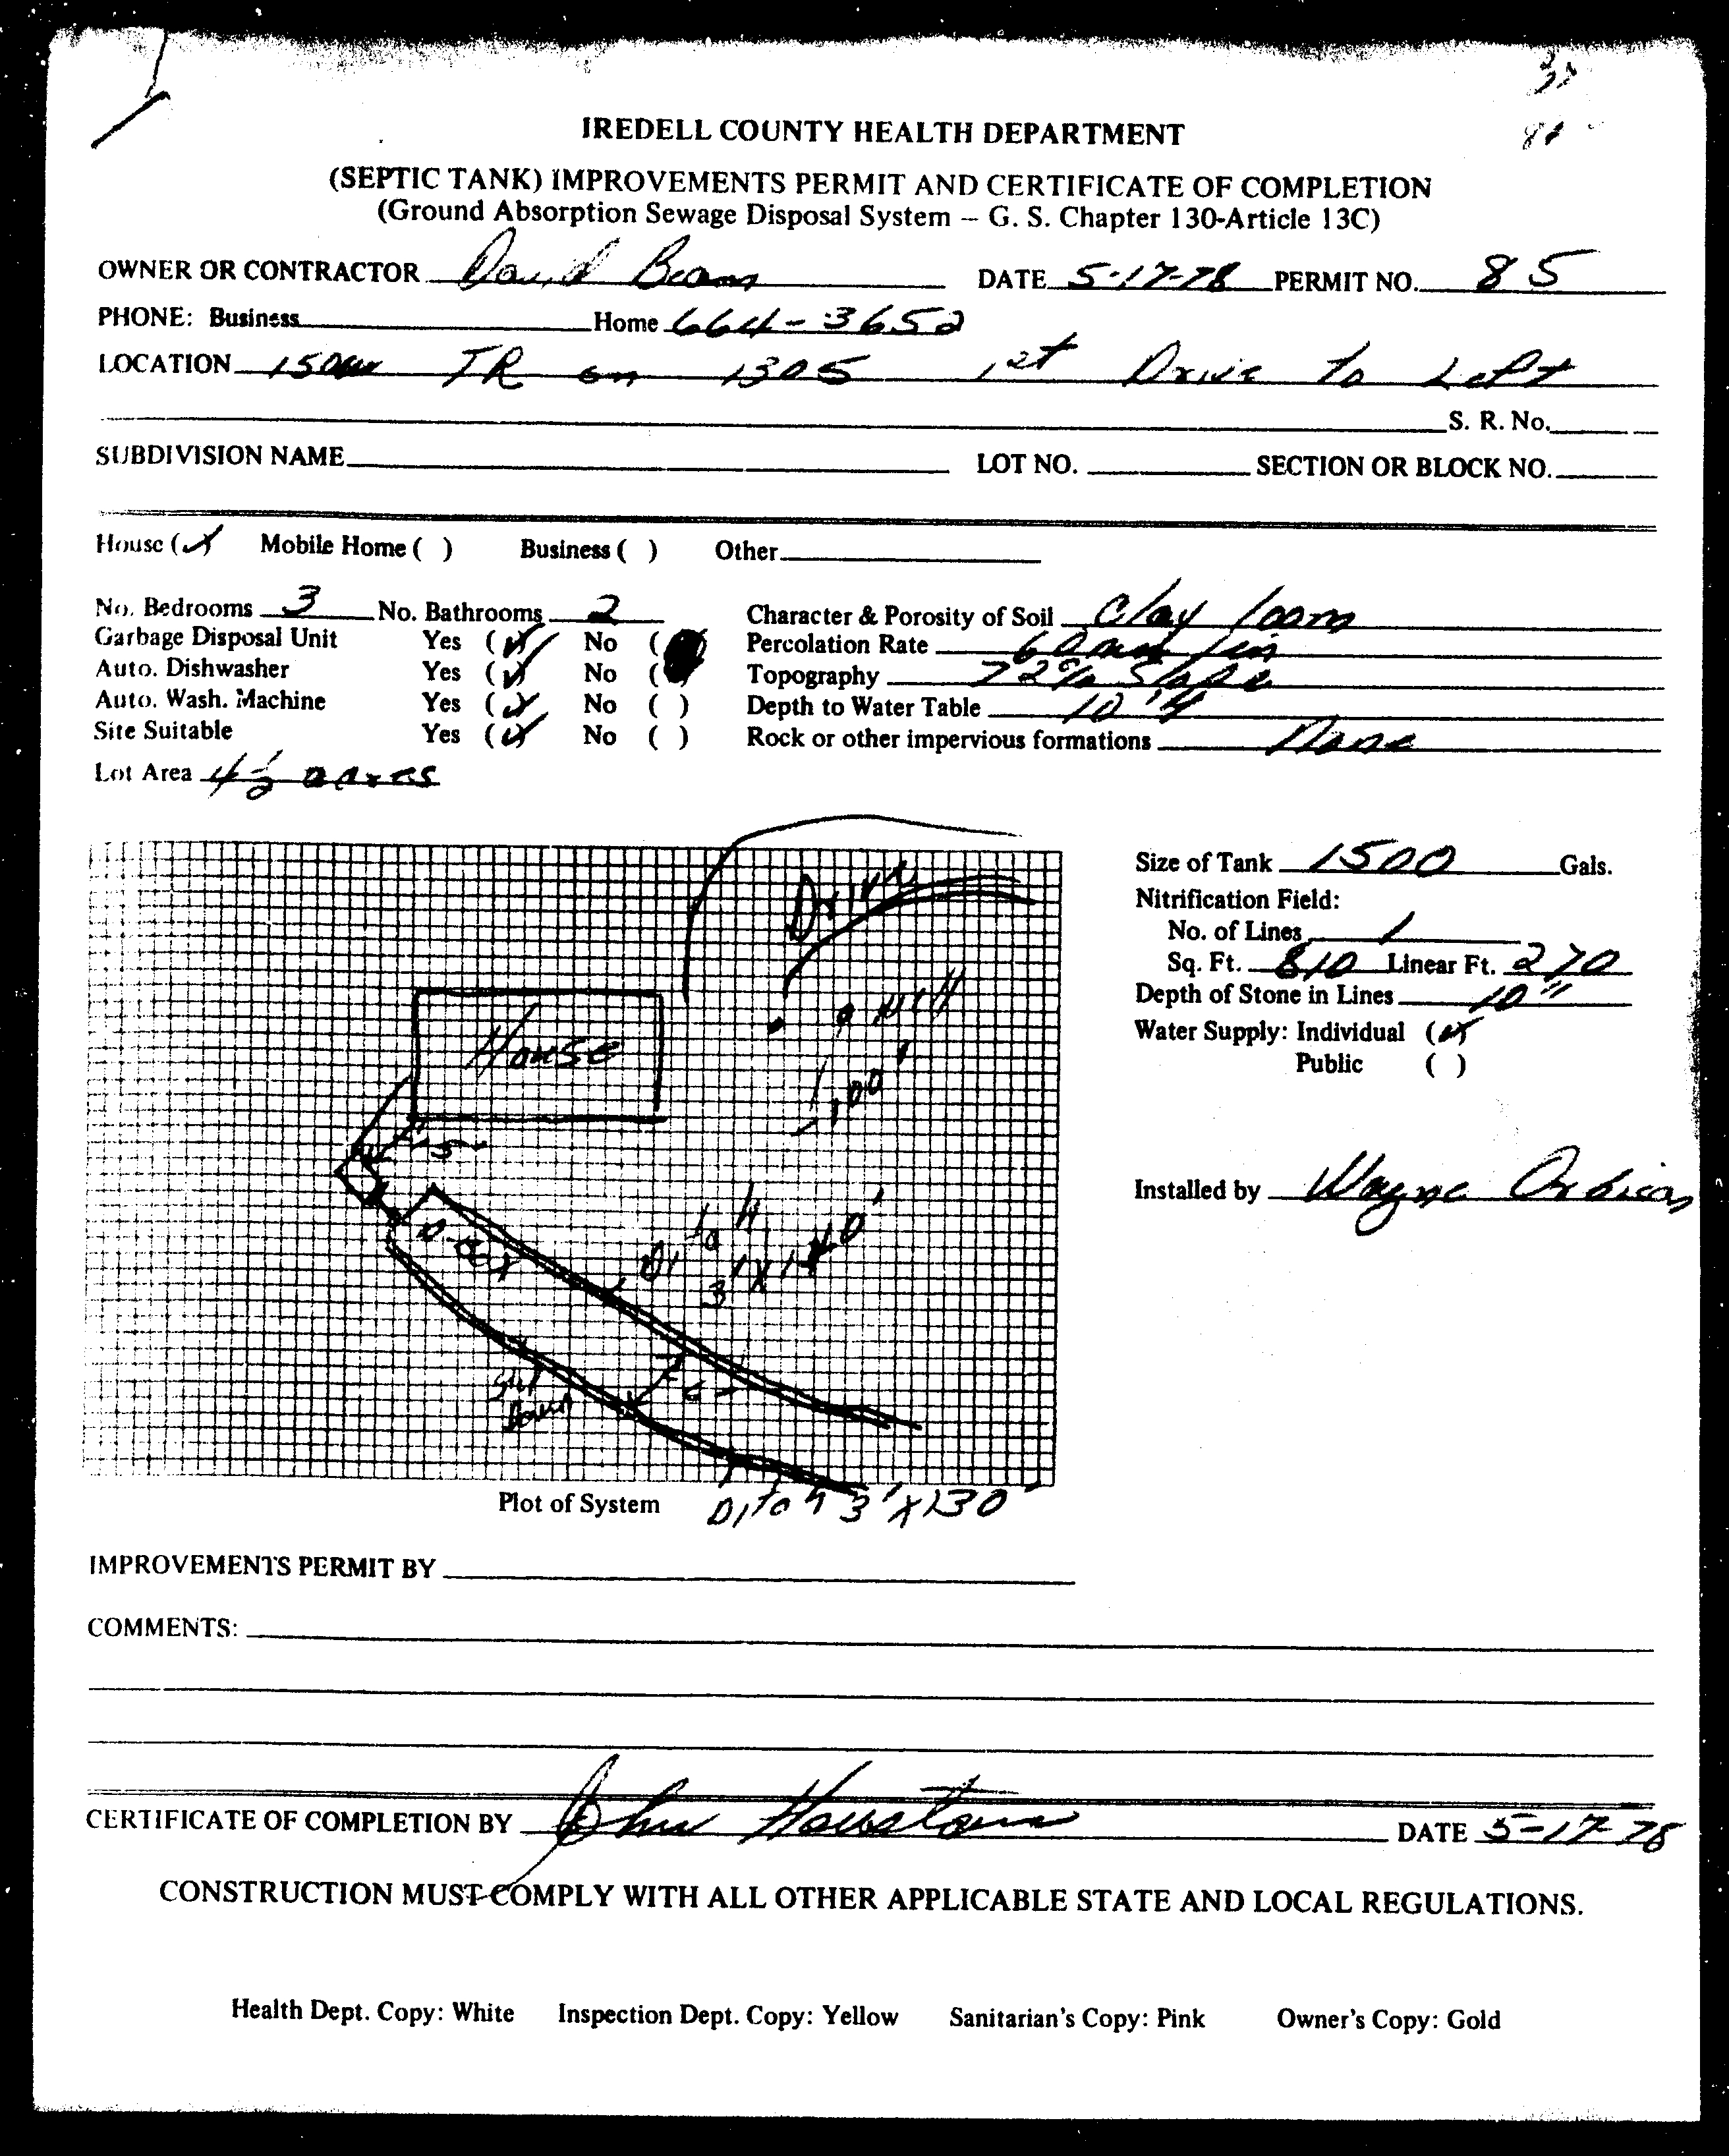 IREDELL COUNTY HEALTH DEPARTMENT
(SEPTIC TANK) IMPROVEMENTS PERMIT AND CERTIFICATE OF COMPLETION
(Ground Absorption Sewage Disposal System — G. S. Chapter 130-Article 13C)
OWNER OR CONTRACTOR David Beam DATE 5-17-78 PERMIT NO. 85
PHONE: Business Home 664-3652
LOCATION 150 TR on 1305 1st Drive to Left
S. R. No.
SUBDIVISION NAME LOT NO. SECTION OR BLOCK NO.
House (✓) Mobile Home ( ) Business ( ) Other
No. Bedrooms 3 No. Bathrooms 2 Character & Porosity of Soil Clay loam
Garbage Disposal Unit Yes (✓) No ( ) Percolation Rate 60 min/in
Auto. Dishwasher Yes (✓) No ( ) Topography 72% Slope
Auto. Wash. Machine Yes (✓) No ( ) Depth to Water Table 10'
Site Suitable Yes (✓) No ( ) Rock or other impervious formations None
Lot Area 4½ acres
Size of Tank 1500 Gals.
Nitrification Field:
No. of Lines 1
Sq. Ft. 810 Linear Ft. 270
Depth of Stone in Lines 10"
Water Supply: Individual (✓)
Public ( )
Installed by Wayne
Drive
well
100'
House
5
D-Box
Ditch
3' x 140'
6
Plot of System Ditch 3' x 130'
IMPROVEMENTS PERMIT BY
COMMENTS:
CERTIFICATE OF COMPLETION BY John Houston DATE 5-17-78
CONSTRUCTION MUST COMPLY WITH ALL OTHER APPLICABLE STATE AND LOCAL REGULATIONS.
Health Dept. Copy: White Inspection Dept. Copy: Yellow Sanitarian's Copy: Pink Owner's Copy: Gold